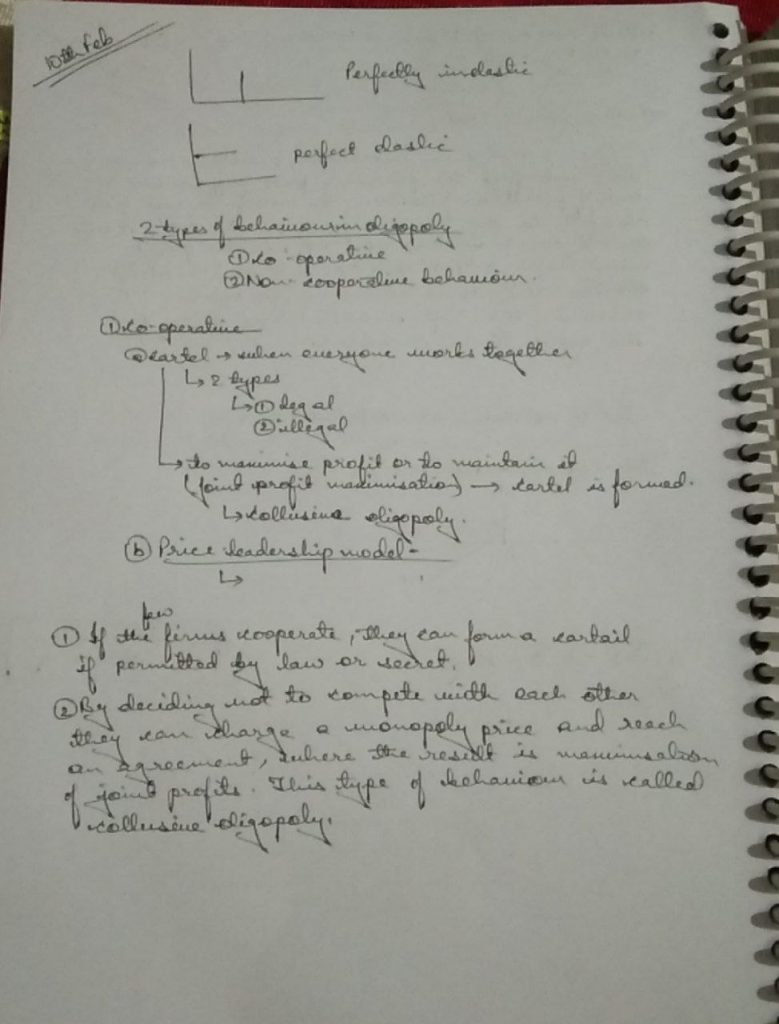 10th Feb
Perfectly inelastic
perfect elastic
2 types of behaviours in oligopoly
① Co-operative
② Non-cooperative behaviour.
① Co-operative
ⓐ cartel → when everyone works together
↳ 2 types
↳ ① legal
② illegal
↳ to maximise profit or to maintain it
(joint profit maximisation) → cartel is formed.
↳ collusive oligopoly.
ⓑ Price leadership model -
↳
few
① If the firms cooperate, they can form a cartail
if permitted by law or secret.
② By deciding not to compete width each other
they can charge a monopoly price and reach
an agreement, where the result is maximisation
of joint profits. This type of behaviour is called
collusive oligopoly.